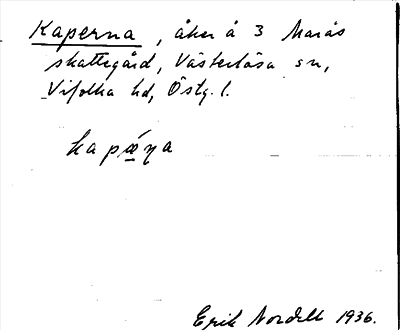 Kaperna, åker å 3 Marås
skattegård, Västerlösa sn,
Vifolka hd, Östg. l.
kapæ̀ɳa
Erik Nordell 1936.